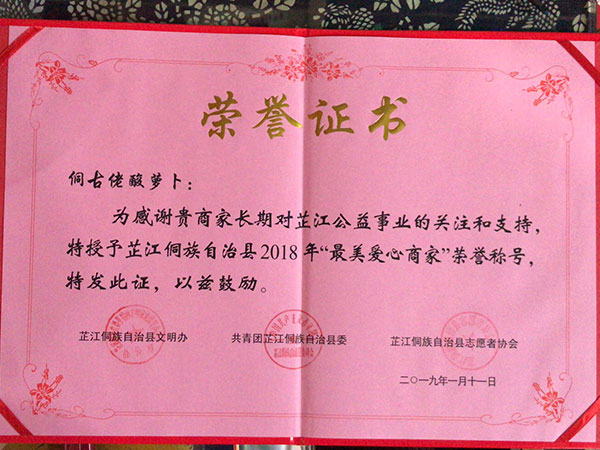 荣誉证书
侗古佬酸萝卜：
为感谢贵商家长期对芷江公益事业的关注和支持，
特授予芷江侗族自治县2018年“最美爱心商家”荣誉称号，
特发此证，以兹鼓励。
芷江侗族自治县文明办 共青团芷江侗族自治县委 芷江侗族自治县志愿者协会
二〇一九年一月十一日